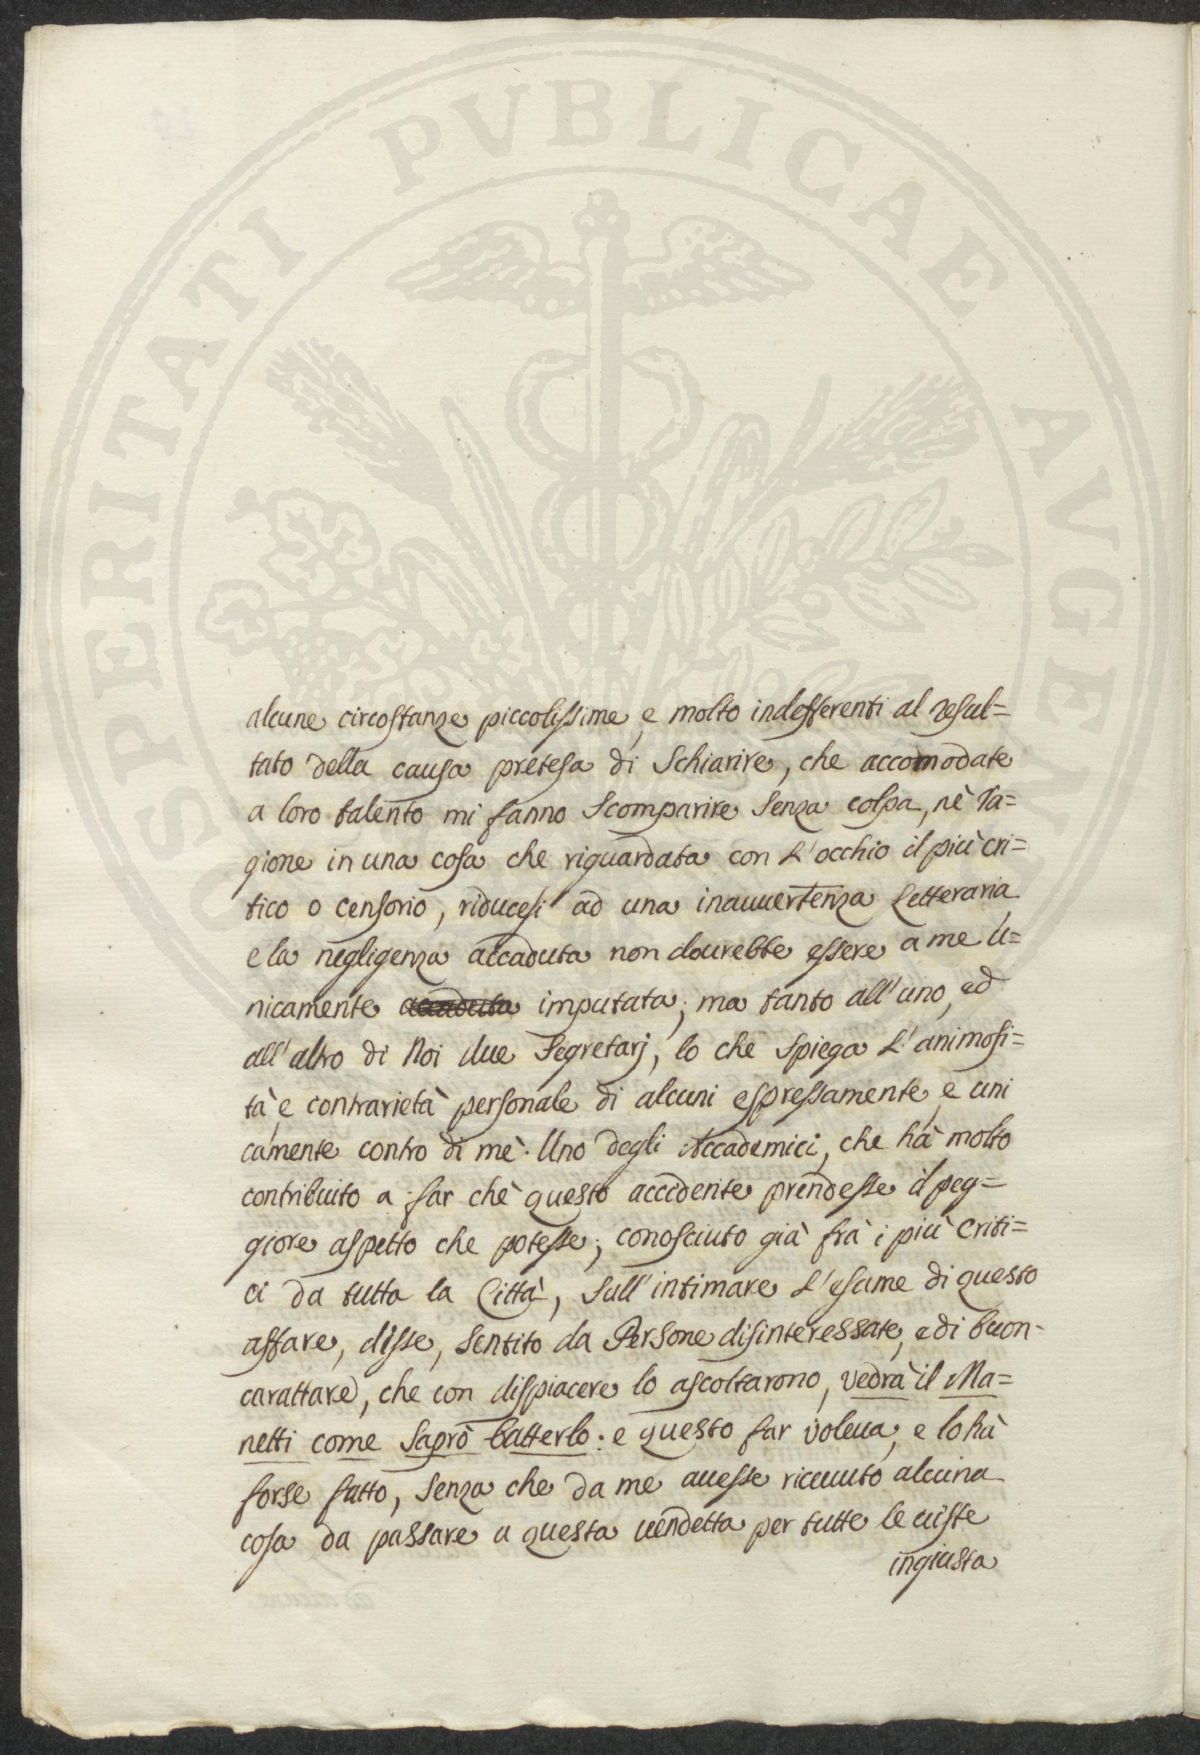 PROSPERITATI PVBLICAE AVGENDAE
alcune circostanze piccolissime, e molto indifferenti al resul=
tato della causa pretesa di Schiarire, che accomodate
a loro talento mi fanno Scomparire Senza colpa, nè ra=
gione in una cosa che riguardata con L'occhio il più cri=
tico o censorio, riducesi ad una inauuertenza Letteraria
e la negligenza accaduta non dourebbe essere a me u=
nicamente accaduta imputata; ma tanto all'uno, ed
all'altro di Noi due Segretarj, lo che Spiega L'animosi=
tà, e contrarietà personale di alcuni espressamente, e uni
camente contro di mè. Uno degli Accademici, che hà molto
contribuito a far che questo accidente prendesse il peg=
giore aspetto che potesse; conosciuto già frà i più Criti=
ci da tutta la Città, Sull'intimare L'esame di questo
affare, disse, Sentito da Persone disinteressate, e di buon-
carattare, che con dispiacere lo ascoltarono, vedrà il Ma=
netti come Saprò batterlo: e questo far voleua, e lo hà
forse fatto, Senza che da me auesse riceuuto alcuna
cosa da passare a questa uendetta per tutte le uiste
ingiusta